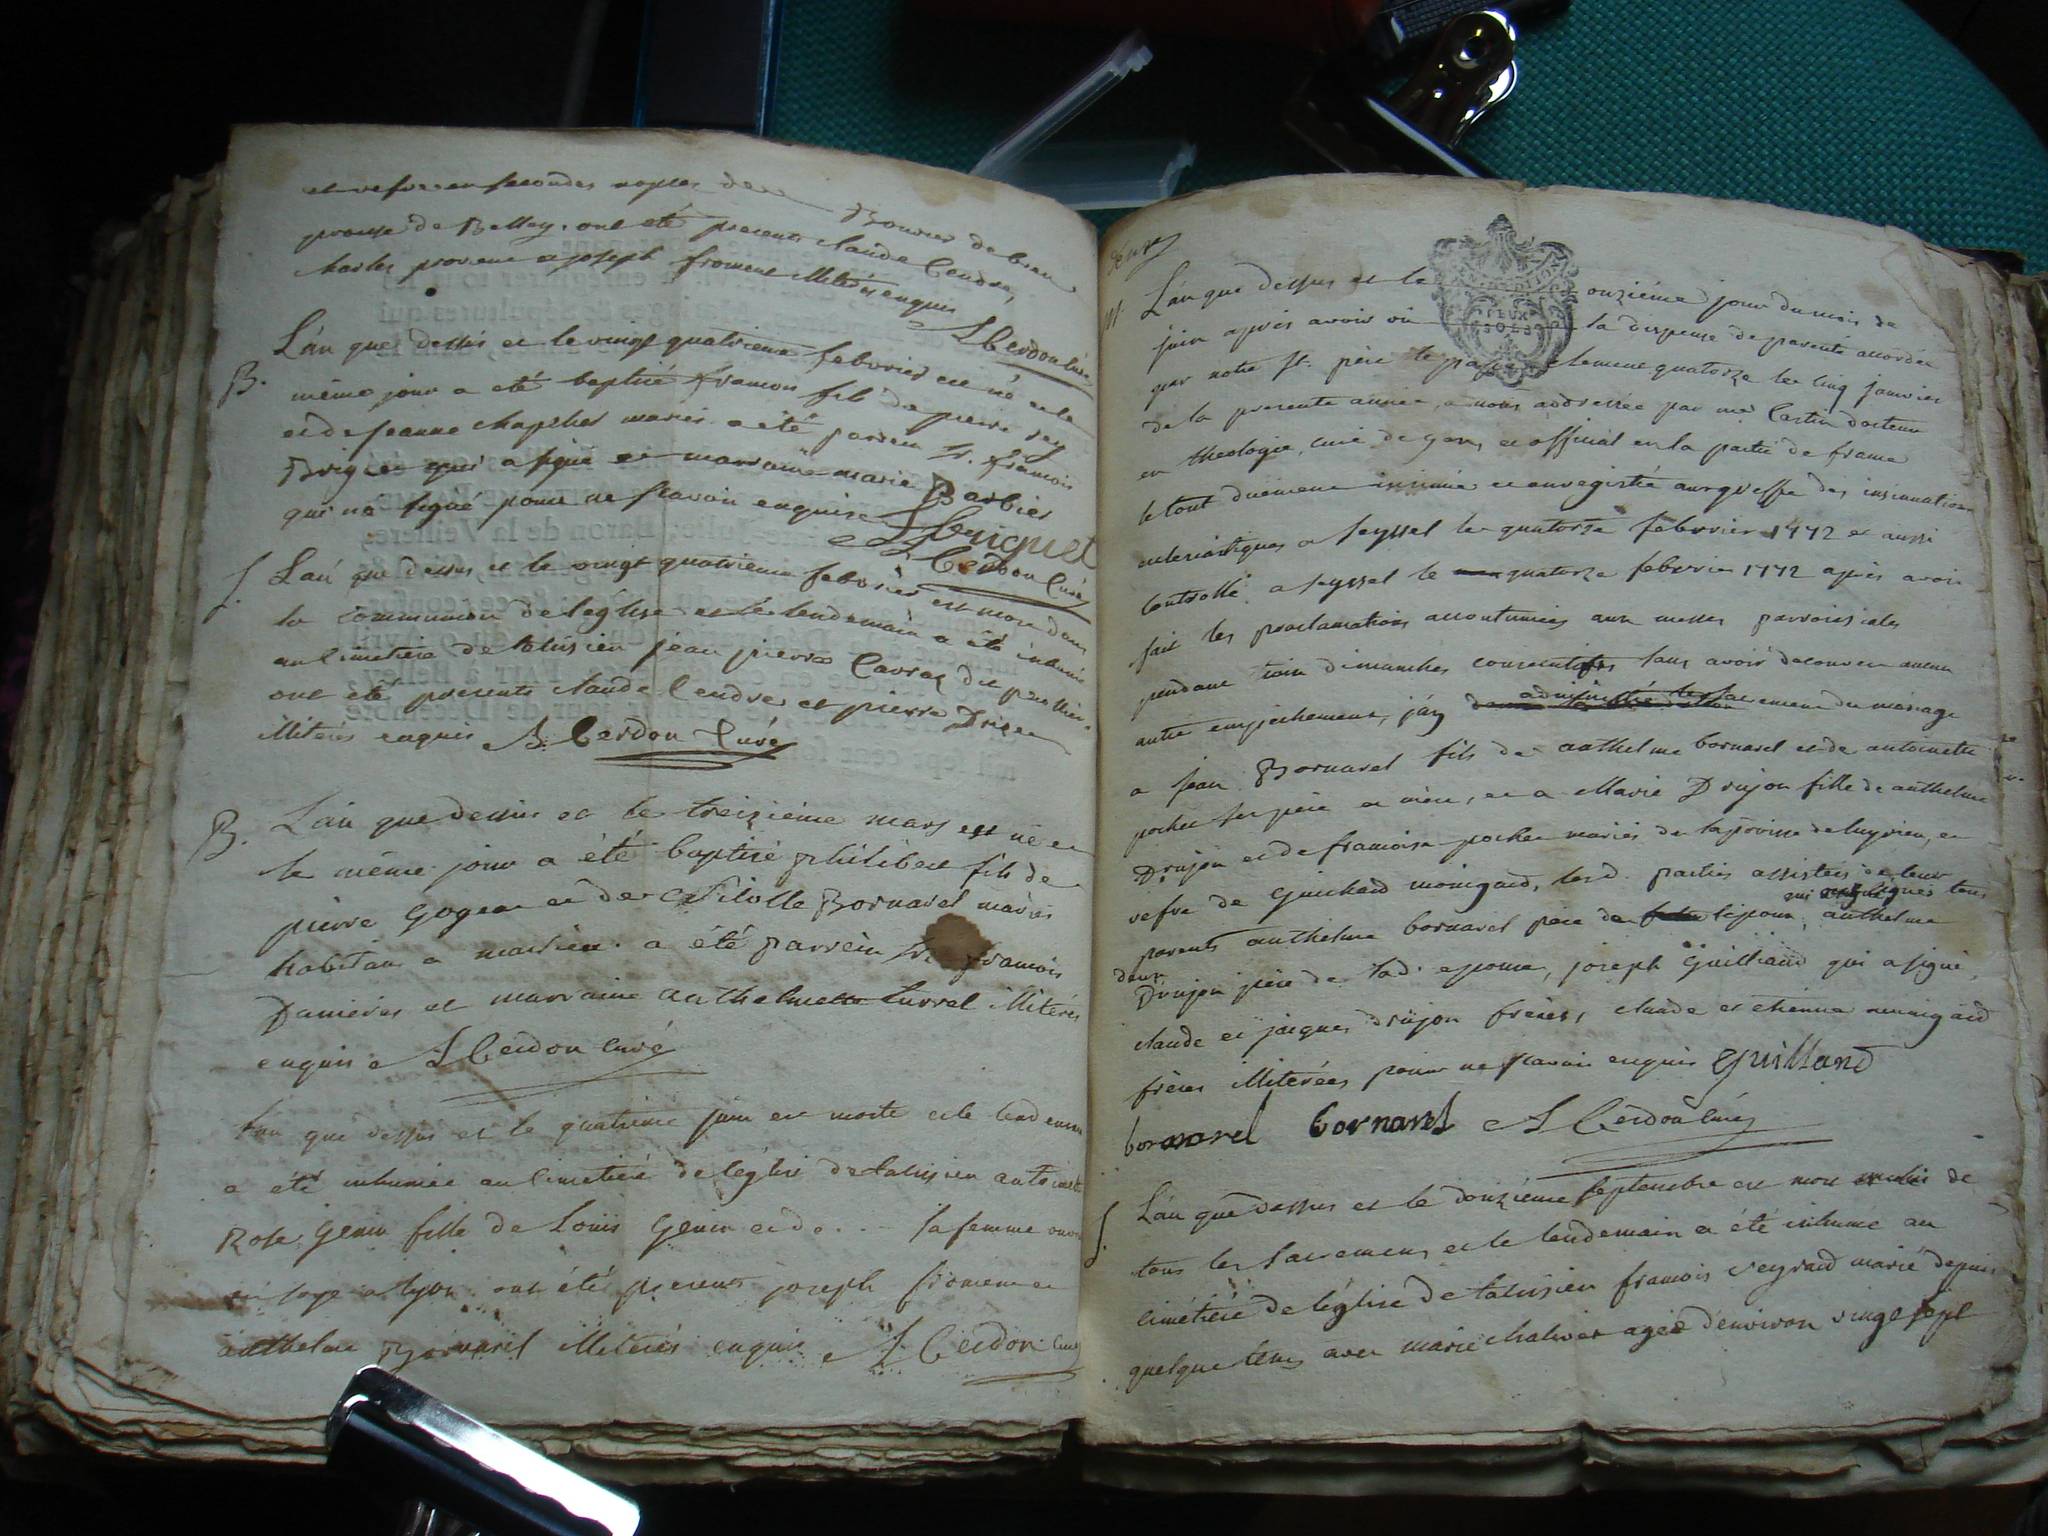 et vefve en secondes nopces de Bouvier de bren
prouse de Belley. ont été presents claude Cendre,
charles provent et joseph froment illiterés enquis
Cerdon curé
B. L'an que dessus et le vingt quatrieme febvrier est né et le
même jour a été baptisé francois fils de pierre rey
et de jeanne chapelles mariés a été parrein Sr. francois
qui a signé et marraine marie Barbier
qui n'a signé pour ne scavoir enquise
Cerdon Curé
S. L'an que dessus et le vingt quatrieme febvrier est mort dans
la communion de léglise et le lendemain a été inhumé
au cimetiere de talusieu jean pierre Cavraz
ont été presents claude Cendre et pierre
illiterés enquis Cerdon Curé
B. L'an que dessus et le treizieme mars est né et
le même jour a été baptisé philibert fils de
pierre Goget et de Bornarel mariés
habitans a a été parrein Sr. francois
Damieres et marraine anthelmette turrel illiterés
enquis Cerdon Curé
L'an que dessus et le quatrieme juin est morte et le lendemain
a été inhumée au cimetiere de léglise de talusieu antoinette
Rose Genin fille de Louis Genin et de . . . sa femme
en soye a lyon ont été presents joseph froment et
anthelme Bornarel illiterés enquis Cerdon Curé
M. L'an que dessus et le onziéme jour du mois de
juin après avoir vû la dispense de parenté accordée
par notre St. père le pape clement quatorze le cinq janvier
de la presente année, a nous addressée par mre Castin docteur
en theologie, curé de et official en la partie de france
le tout duëment insinué et enregistré au greffe des insinuations
eclesiastiques a seyssel le quatorze febvrier 1772 et aussi
controllé a seyssel le quatorze febvrier 1772 après avoir
fait les proclamations accoutumées aux messes parroissiales
pendant trois dimanches consecutifs sans avoir decouvert aucun
autre empechement, j'ay administré le sacrement du mariage
a jean Bornarel fils de anthelme bornarel et de antoinette
pochet ses père et mère, et a Marie Drujon fille de anthelme
Drujon et de francoise pochet mariés de la paroisse de luyrieu, et
vefve de Guichard monigard, lesd. parties assistées de leurs
parents anthelme bornarel père de l'epoux, anthelme
Drujon père de lad. epouse, joseph Guilliand qui a signé,
claude et jacques drujon frères, claude et etienne monigard
frères illiterées pour ne scavoir enquis Guilland
bornarel bornarel Cerdon Curé
S. L'an que dessus et le douziéme septembre est mort de
tous les sacremens et le lendemain a été inhumé au
cimétiere de léglise de talusieu francois reyraud marié depuis
quelque tems avec marie chaluet agé d'environ vingt sept